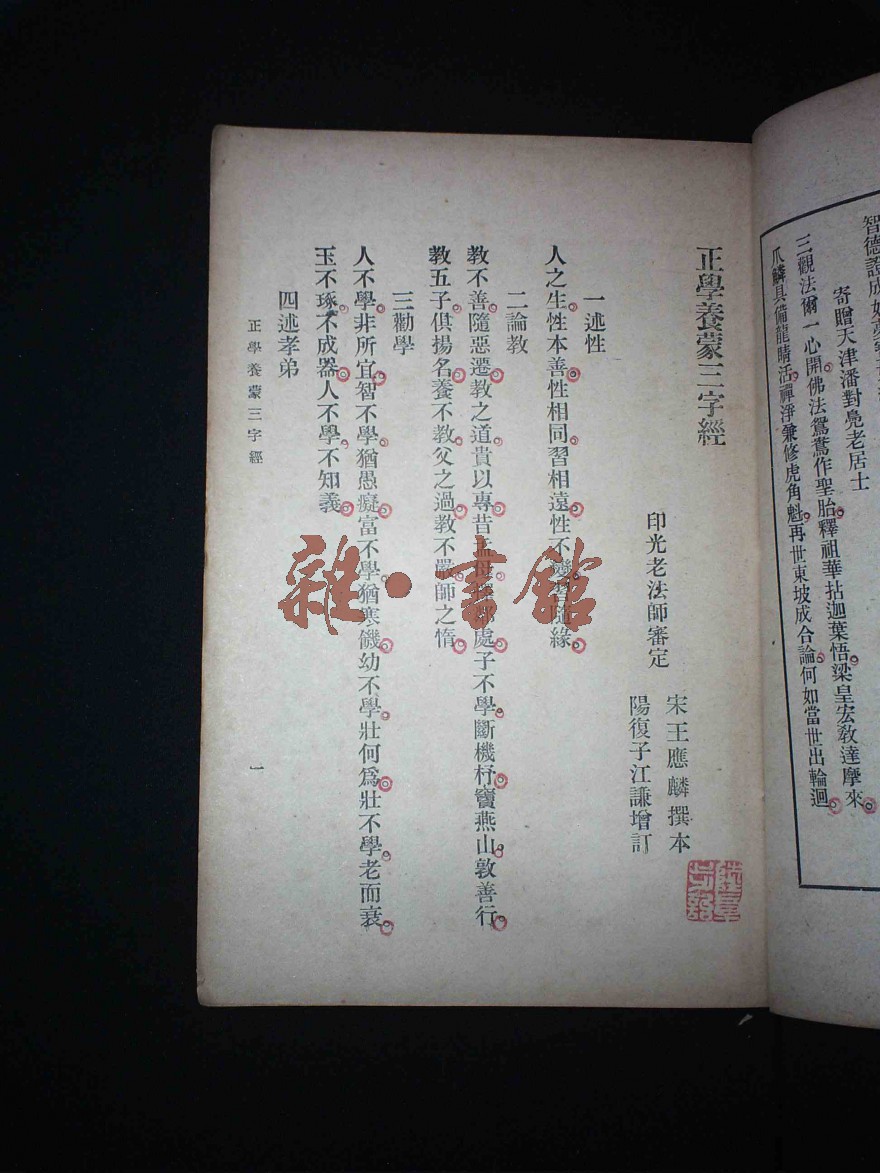 智德證成
寄贈天津潘對鳧老居士
三觀法爾一心開佛法鴛鴦作聖胎釋祖華拈迦葉悟梁皇宏教達摩來
爪鱗具備龍睛活禪淨兼修虎角魁再世東坡成合論何如當世出輪迴
正學養蒙三字經
印光老法師審定
宋王應麟撰本
陽復子江謙增訂
一述性
人之生性本善性相同習相遠性不變習隨緣
二論教
教不善隨惡遷教之道貴以專昔孟母擇鄰處子不學斷機杼竇燕山敦善行
教五子俱揚名養不教父之過教不嚴師之惰
三勸學
人不學非所宜智不學猶愚癡富不學猶寒饑幼不學壯何為壯不學老而衰
玉不琢不成器人不學不知義
四述孝弟
正學養蒙三字經
一
雜·書館